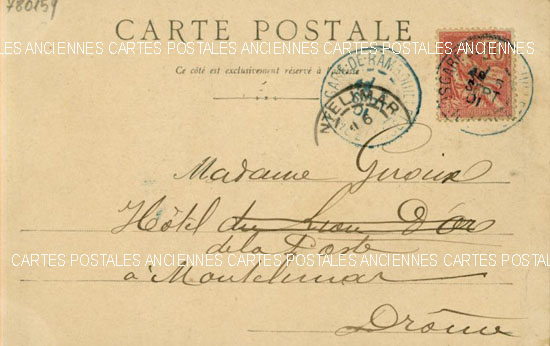 780159
CARTE POSTALE
ANCIENNES CARTES POSTALES ANCIENNES CARTES POSTALES ANCIENNES CARTES
Ce côté est exclusivement réservé à l'adresse
GARE-DE-RAM
MONTELIMAR
10
Madame Giroux
Hôtel du Lion D'or
de la Poste
CARTES POSTALES ANCIENNES CARTES POSTALES ANCIENNES CARTES POSTALES
à Montelimar
Drôme